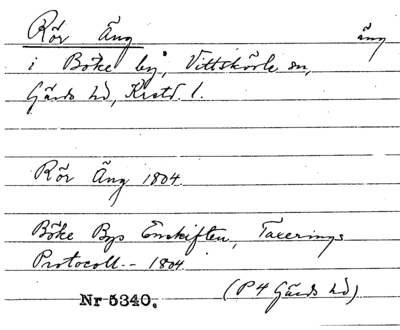 Rör Äng äng
i Böke by, Vittskövle sn,
Gärds hd, Krstd. l.
Rör Äng 1804.
Böke Bys Enskiften, Taxerings
Protocoll -- 1804.
(P4 Gärds hd)
Nr 5340.